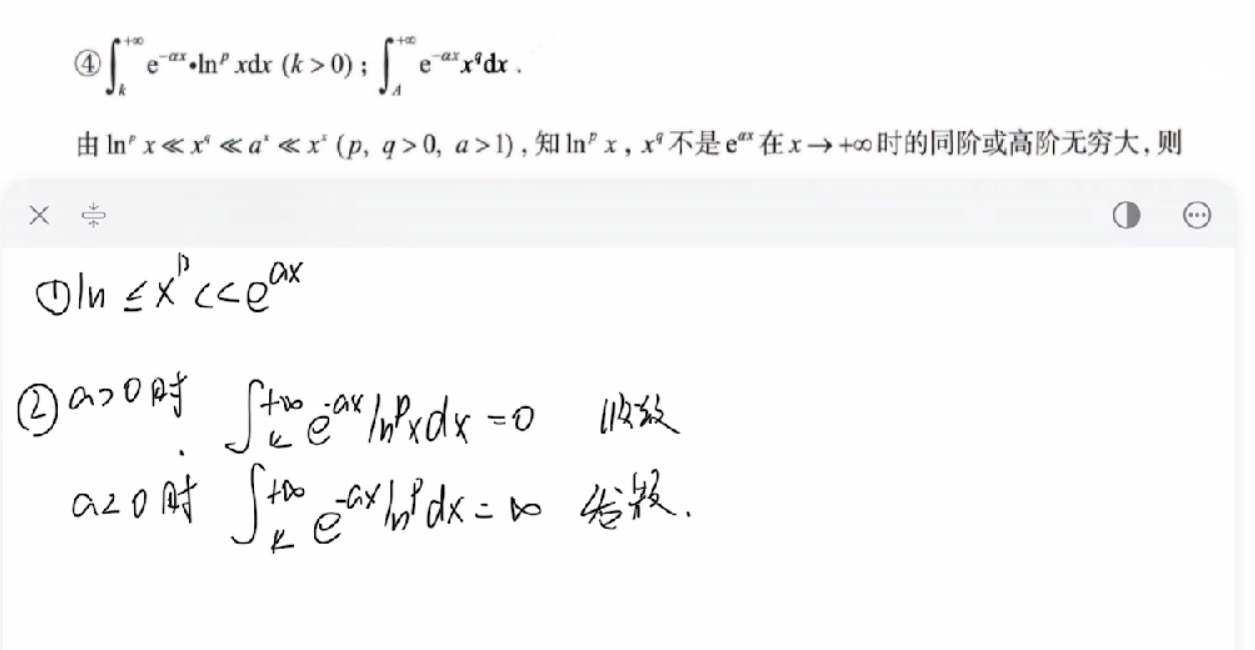 ④∫_k^{+∞} e^{-αx}•ln^p xdx (k>0) ; ∫_A^{+∞} e^{-αx}x^q dx .
由 ln^p x≪x^q≪a^x≪x^x (p, q>0, a>1) , 知 ln^p x , x^q 不是 e^{αx} 在 x→+∞时的同阶或高阶无穷大, 则
①ln ≤x^p<<e^{ax}
②a>0时 ∫_k^{+∞} e^{-ax} ln^p xdx =0 收敛
a<0时 ∫_k^{+∞} e^{-ax} ln^p dx = ∞ 发散.